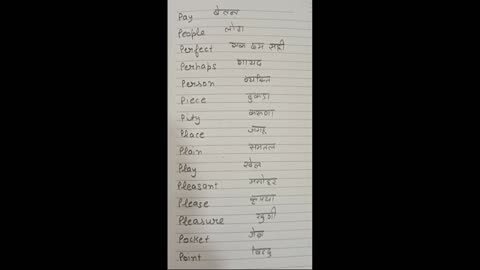 Pay वेतन
People लोग
Perfect एक दम सही
Perhaps शायद
Person व्यक्ति
Piece टुकड़ा
Pity करुणा
Place जगह
Plain समतल
Play खेल
Pleasant मनोहर
Please कृपया
Pleasure खुशी
Pocket जेब
Point बिंदु